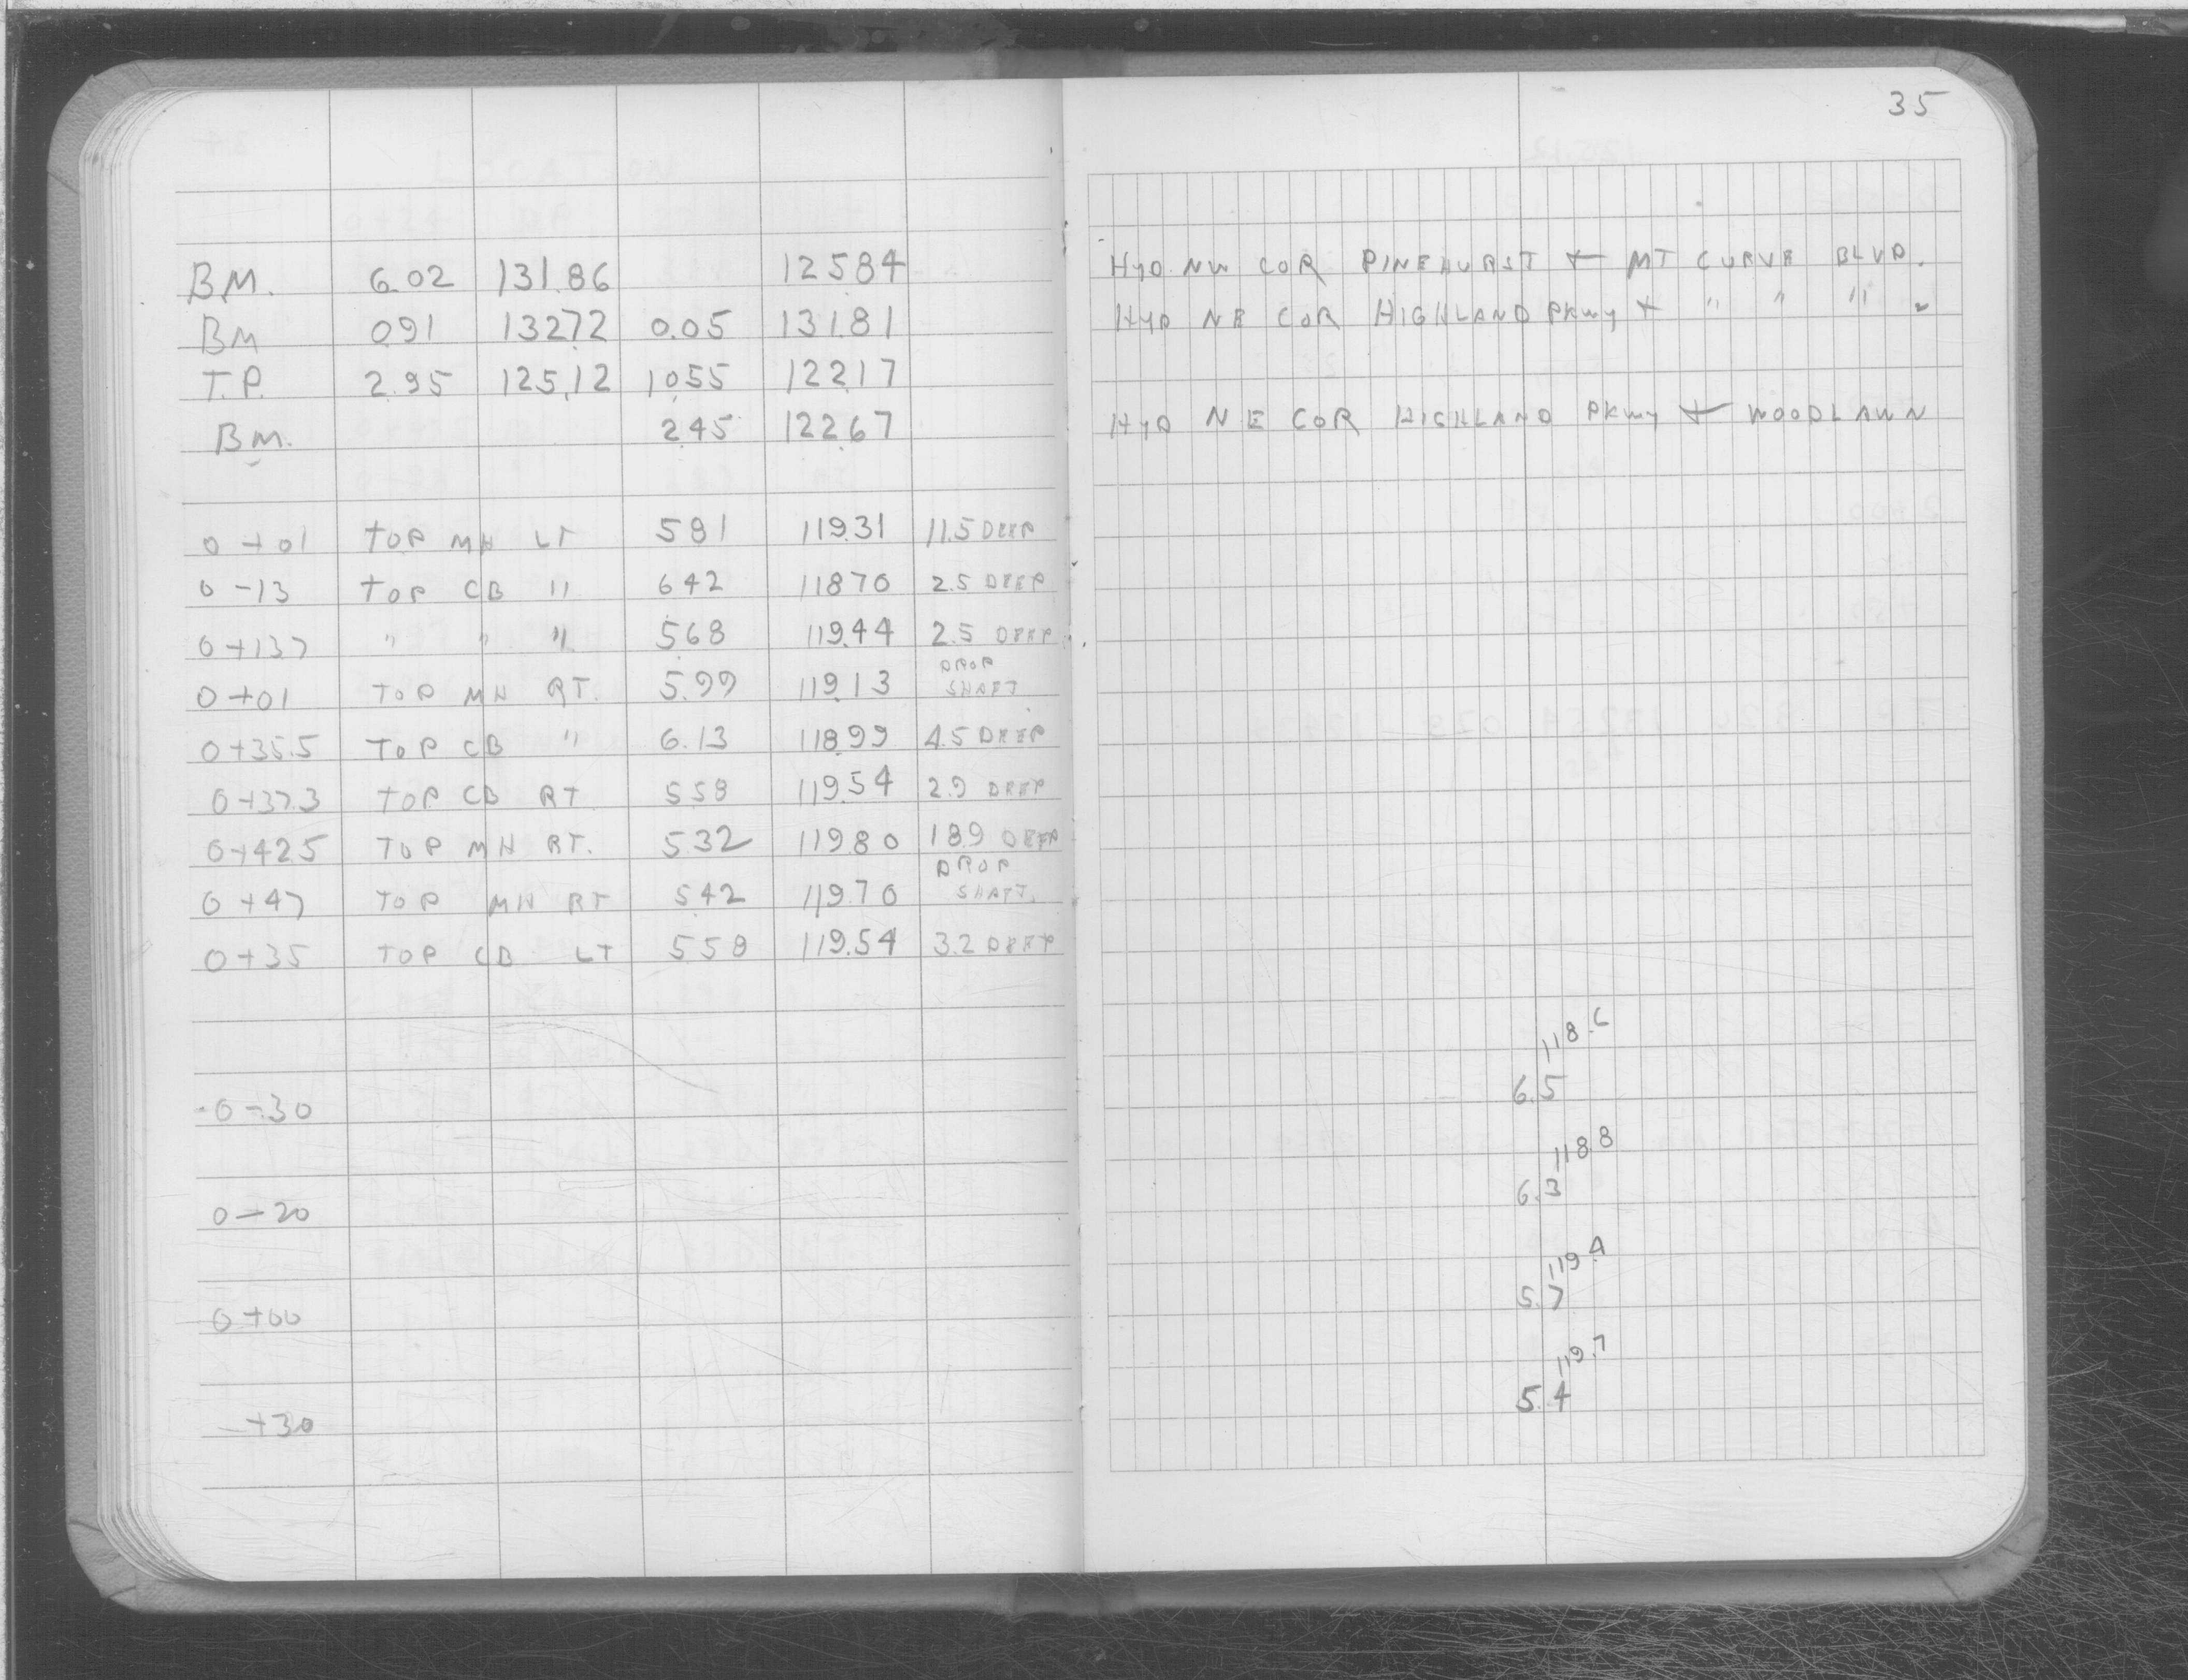 35
BM. 6.02 131.86 125.84 Hyd. NW COR PINEHURST + MT CURVE BLVD.
BM 0.91 132.72 0.05 131.81 Hyd NE COR HIGHLAND PKwy + " " "
T.P. 2.95 125.12 10.55 122.17
BM. 2.45 122.67 Hyd NE COR HIGHLAND PKwy + WOODLAWN
0+01 TOP MH LT 5.81 119.31 11.5 DEEP
0-13 TOP CB " 6.42 118.70 2.5 DEEP
0+13.7 " " " 5.68 119.44 2.5 DEEP
0+01 TOP MH RT. 5.99 119.13 DROP SHAFT
0+35.5 TOP CB " 6.13 118.99 4.5 DEEP
0+37.3 TOP CB RT 5.58 119.54 2.9 DEEP
0+42.5 TOP MH RT. 5.32 119.80 18.9 DEEP
0+47 TOP MH RT 5.42 119.70 DROP SHAFT.
0+35 TOP CB LT 5.58 119.54 3.2 DEEP
118.6
0-30 6.5
118.8
0-20 6.3
119.4
0+00 5.7
119.7
+30 5.4